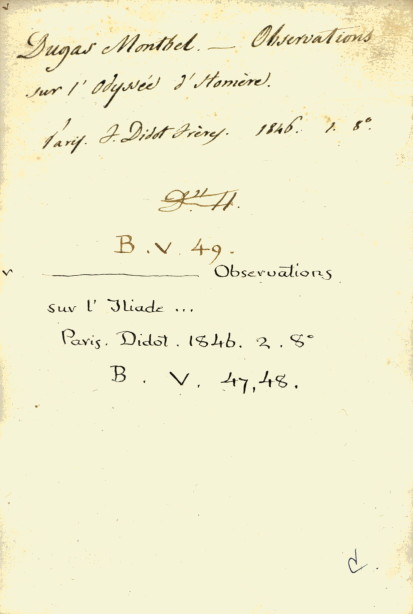 Dugas Montbel. — Observations
sur l' Odyssée d'Homère.
Paris. F. Didot Frères. 1846. 1. 8°.
B. V. 49.
——— Observations
sur l' Iliade ...
Paris. Didot. 1846. 2. 8°
B. V. 47,48.